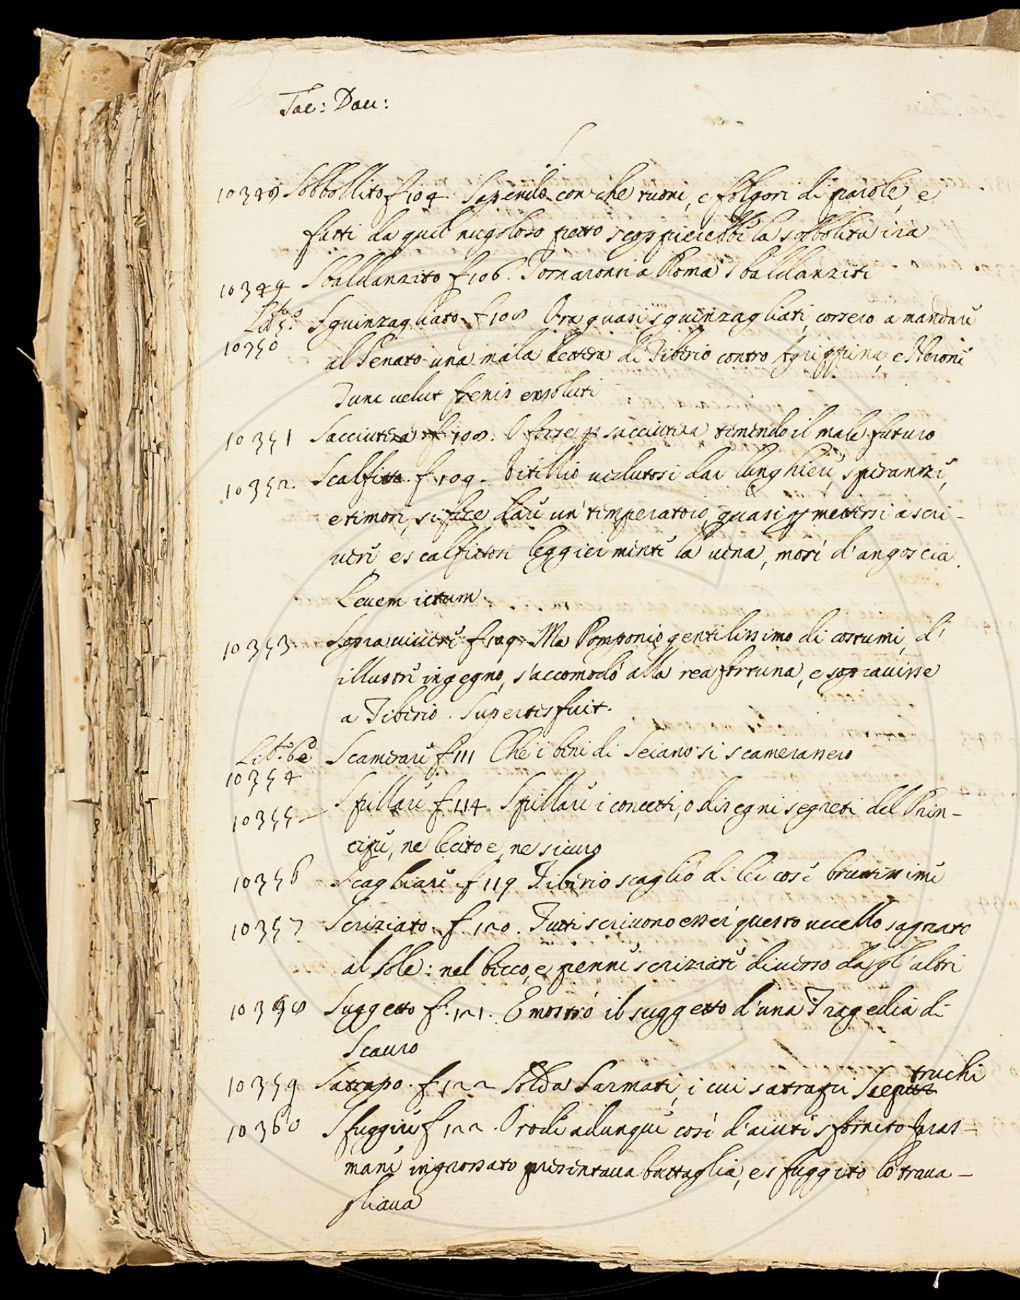 Tac: Dau:
10348 Sobbollito f. 104. Sapendo con che tuoni, e folgori di parole, e
fatti da quel nugoloso petto scoppierebbe la sobbolita ira
10349 Sbaldanzito f. 106. Tornaronsi a Roma sbaldanziti
Lib.º 5.º
10350 Sguinzagliato f. 108 Ora quasi sguinzagliati, corsero a mandare
al Senato una mala lettera di Tiberio contro Agrippina, e Nerone
Tunc velut frenis exsoluti
10351 Sacciutezza f. 108. O forse p sacciutezza temendo il male futuro
10352 Scalfitto f. 109. Vitellio vedutosi dar lunghiere, speranze,
e timori, si fece dare un temperatoio, quasi p mettersi a scri-
vere, e scalfittosi leggiermente la vena, morì d'angoscia.
Levem ictum
10353. Sopravivere f. 109. Ma Pomponio gentilissimo di costumi, d'
illustre ingegno, s'accomodò alla rea fortuna, e sopravisse
a Tiberio. Superstes fuit.
Lib.º 6.º
10354 Scamerare f. 111 Che i beni di Seiano si scamerassero
10355 Spillare f. 114. Spillare i concetti, o disegni segreti del Prin-
cipe, ne lecito e, ne sicuro
10356 Scagliare f. 119 Tiberio scagliò di lei cose bruttissime
10357 Screziato. f. 120. Tutti scrivono esser questo uccello sagrato
al Sole: nel becco, e penne screziate diverso dagl'altri
10358 Suggetto f. 121. E mostrò il suggetto d'una Tragedia di
Scauro
10359 Satrapo. f. 122 Solda Sarmati, i cui satrapi Sceptruchi
10360 Sfuggire f. 122. Orode adunque così d'aiuti sfornito Faras-
mane ingrossato presentava battaglia, e sfuggito lo trava-
gliava